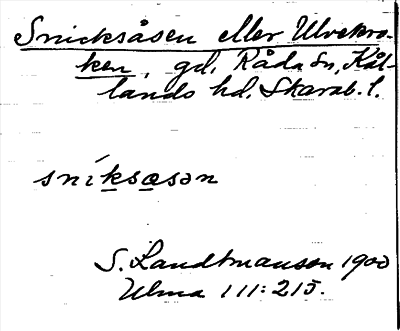 Snicksåsen eller Ulvekro-
ken, gd, Råda sn, Kål-
lands hd. Skarab. l.
sníksasən
S. Landtmanson 1900
Ulma 111:215.